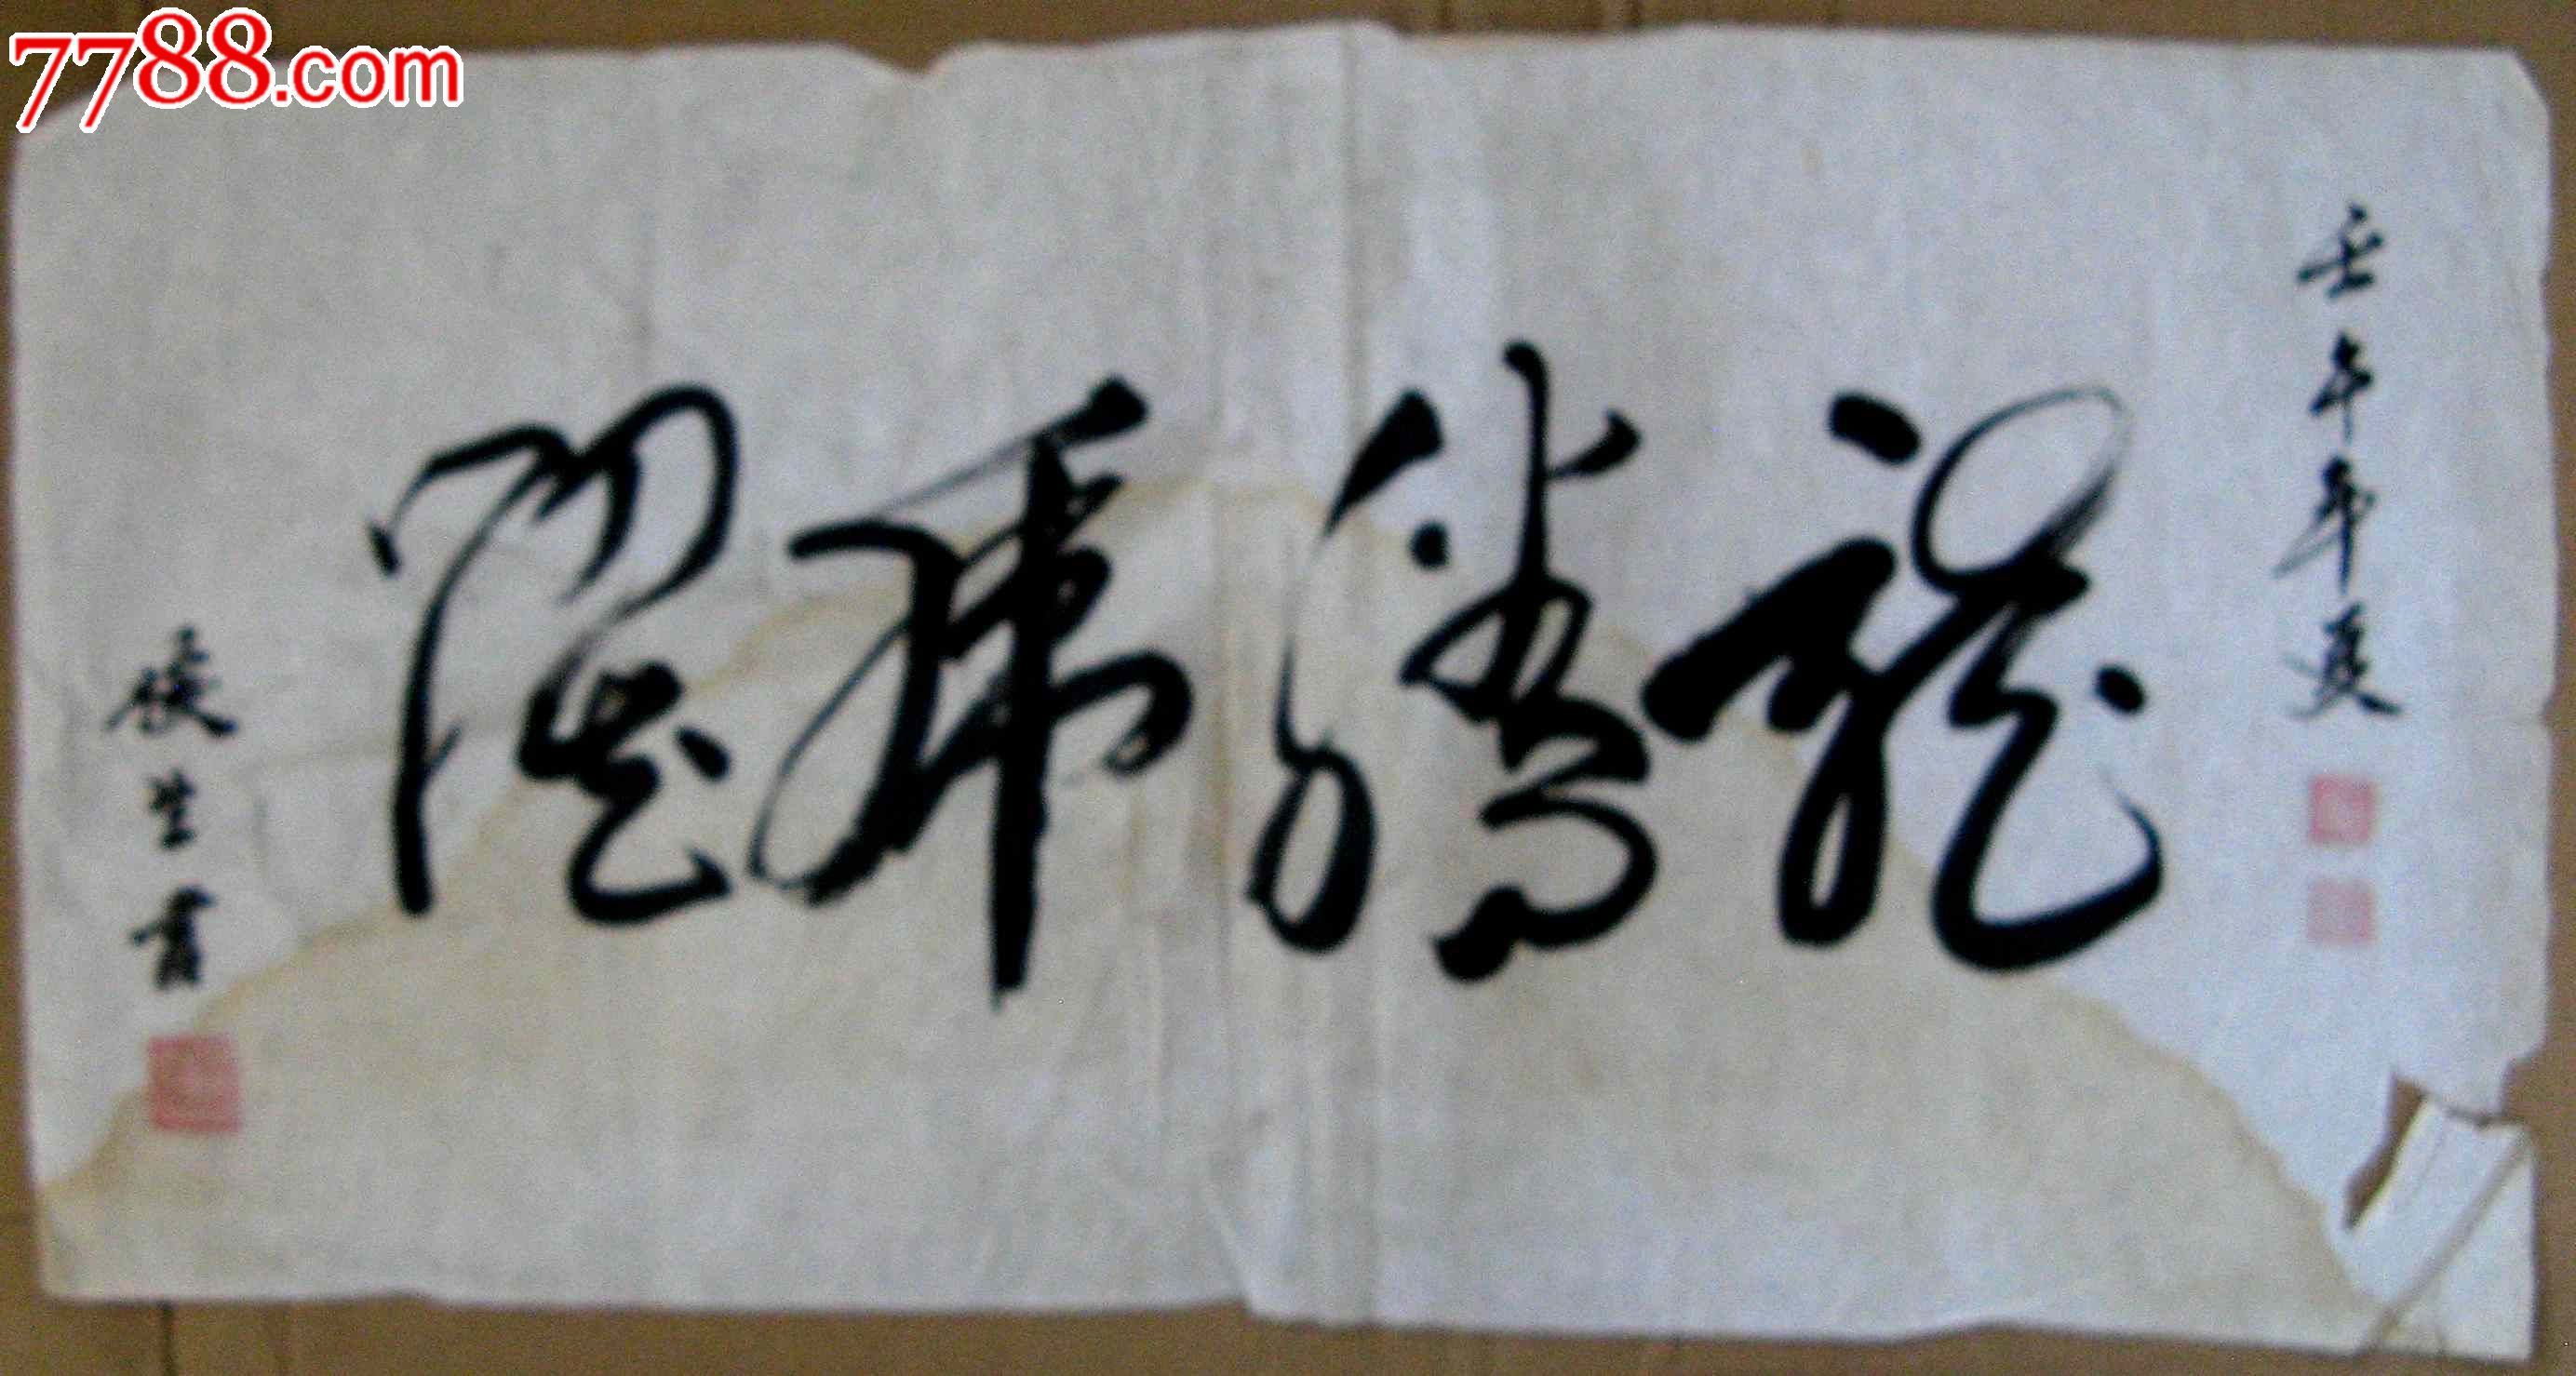 7788.com
壬午年夏
龍騰虎躍
生書